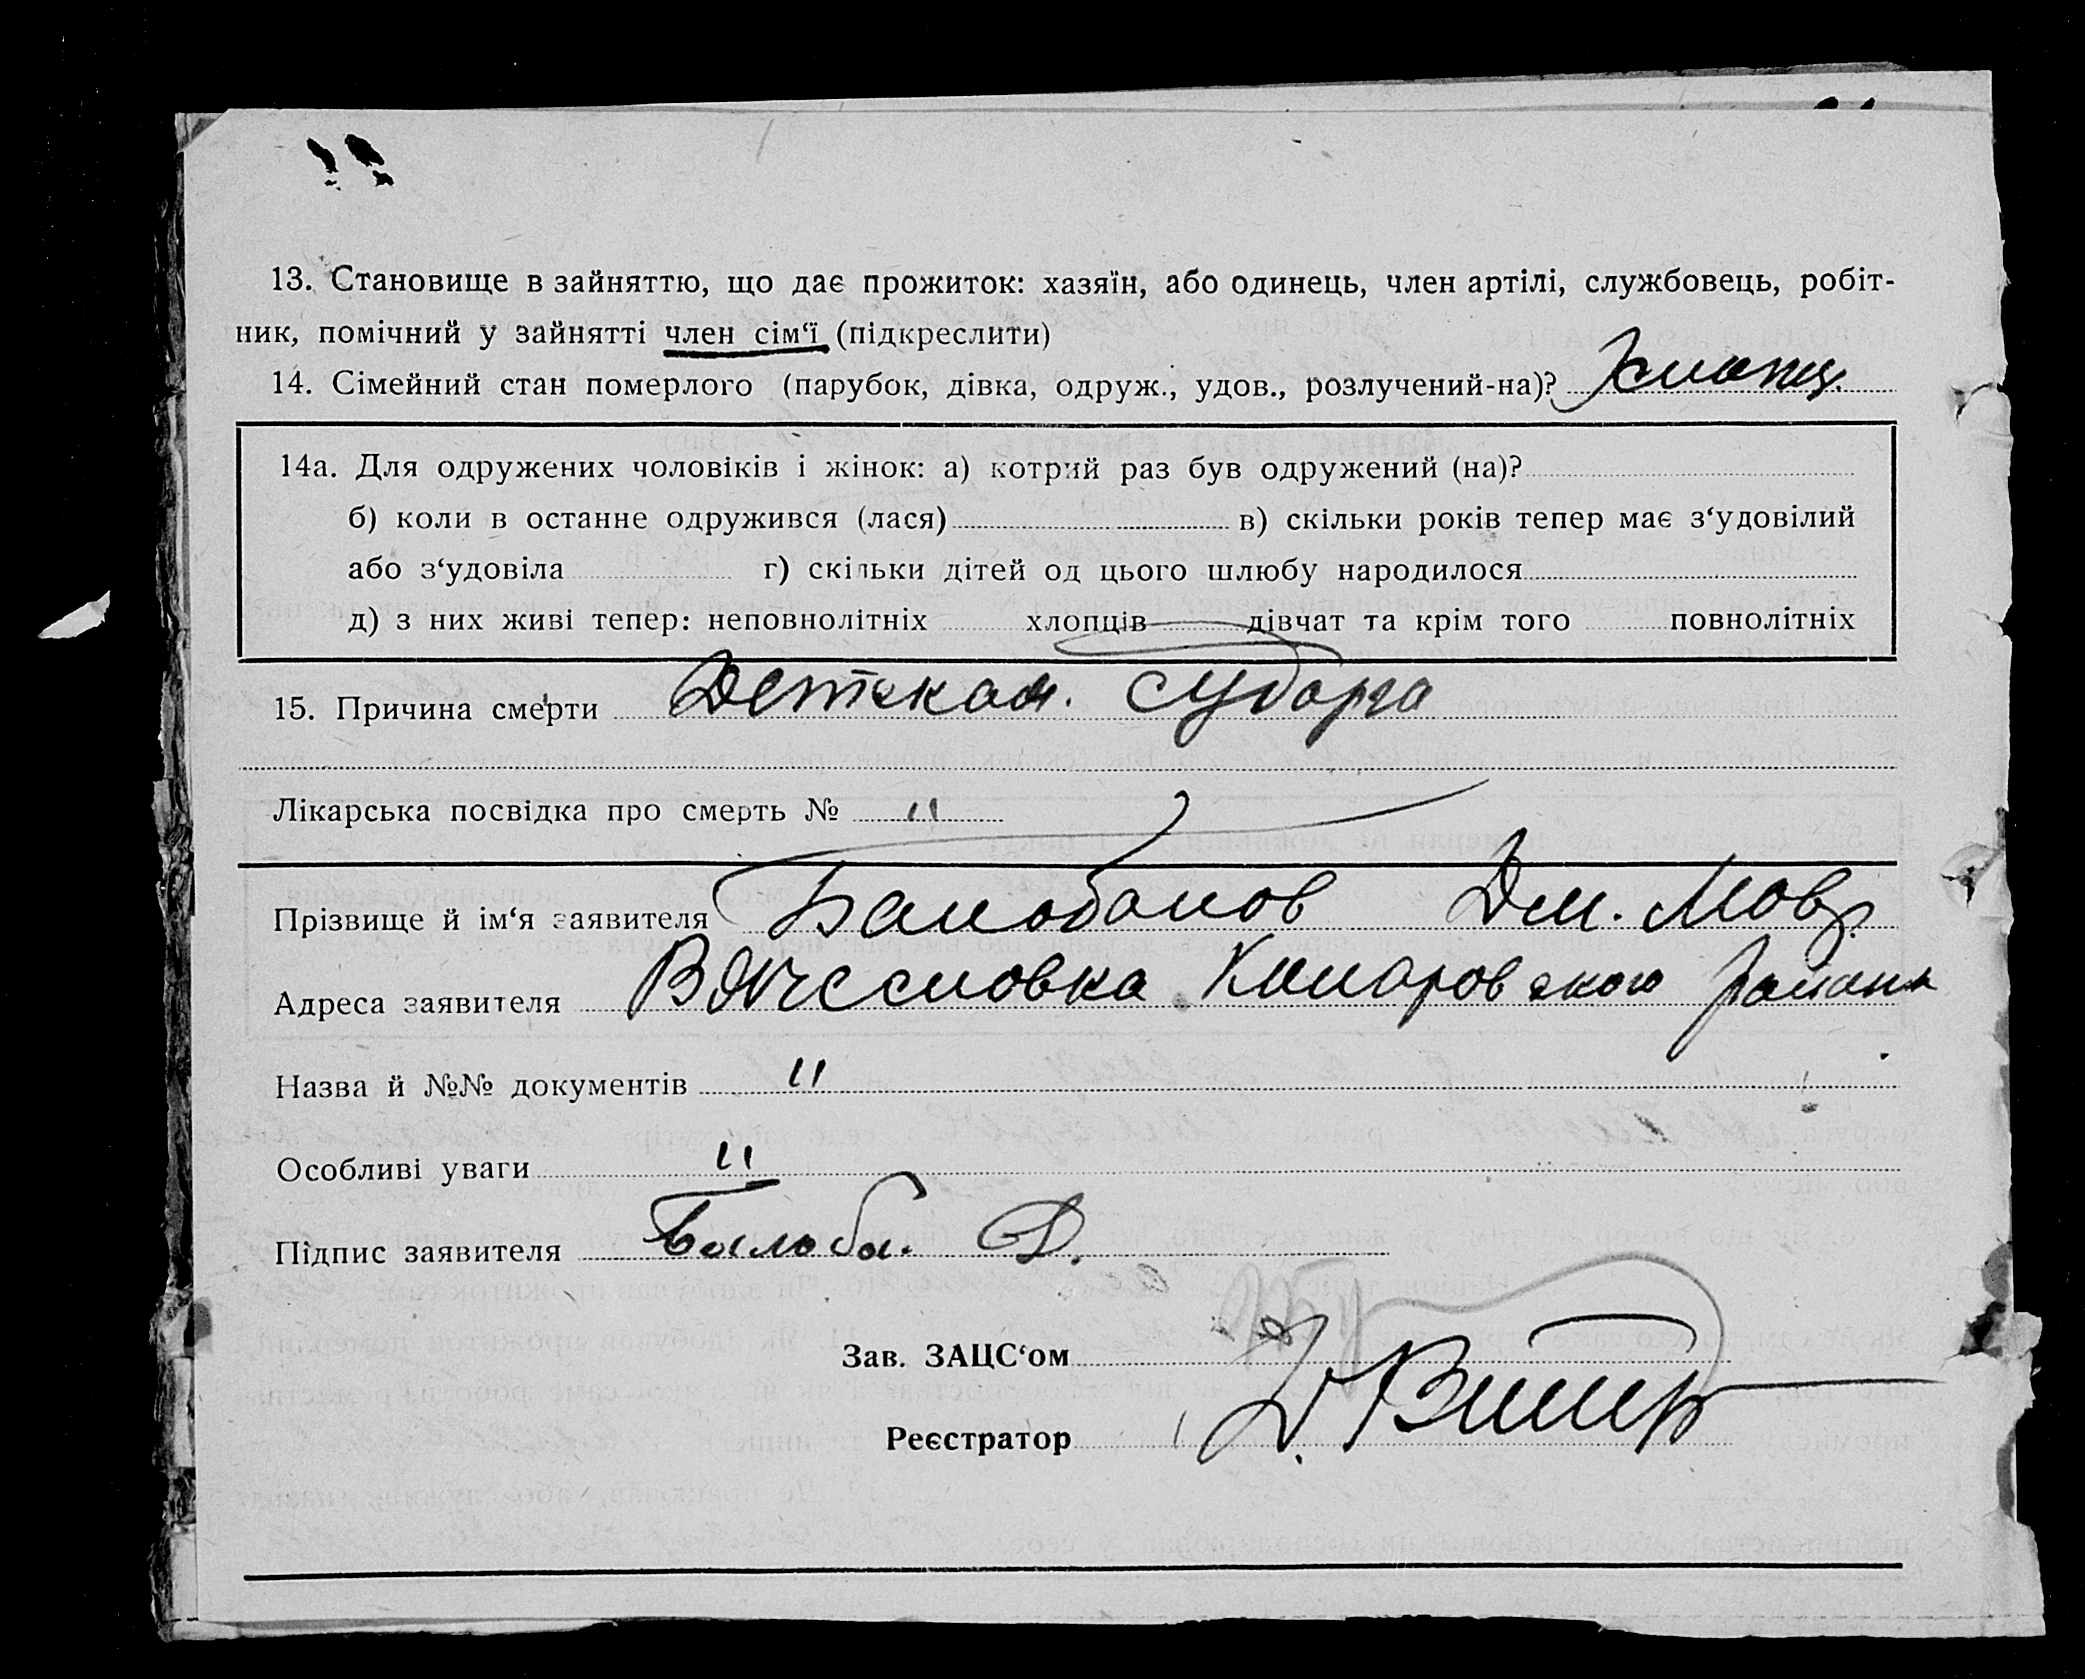 13. Становище в зайняттю, що дає прожиток: хазяїн, або одинець, член артілі, службовець, робіт-
ник, помічний у зайнятті член сім‘ї (підкреслити)
14. Сімейний стан померлого (парубок, дівка, одруж., удов., розлучений-на)?
14а. Для одружених чоловіків і жінок: а) котрий раз був одружений (на)?
б) коли в останне одружився (лася) в) скільки років тепер має з‘удовілий
або з‘удовіла г) скільки дітей од цього шлюбу народилося
д) з них живі тепер: неповнолітніх хлопців дівчат та крім того повнолітніх
15. Причина смерти Детская. судорга
Лікарська посвідка про смерть № "
Прізвище й ім‘я заявителя Балабанов Дм. Мавр.
Адреса заявителя Вячеславка Комаровского района
Назва й №№ документів "
Особливі уваги "
Підпис заявителя Балаба. Д.
Зав. ЗАЦС‘ом
Реєстратор